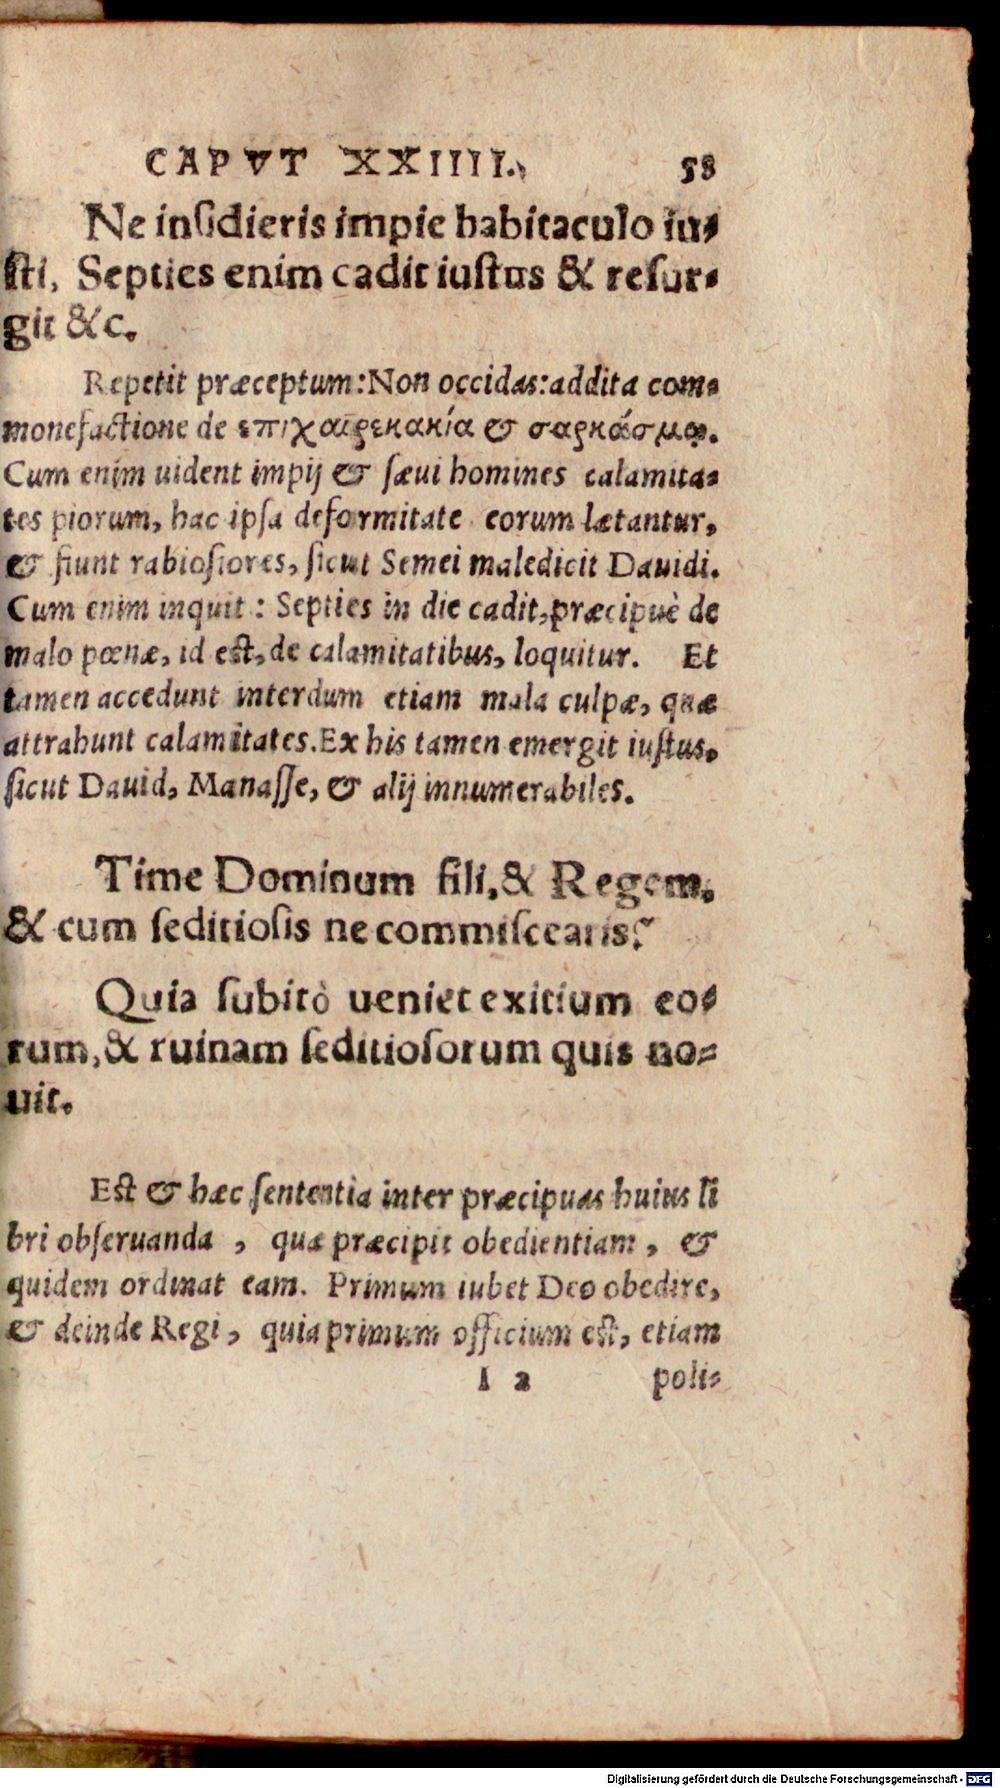 CAPVT XXIIII. 58
Ne insidieris impie habitaculo iu-
sti, Septies enim cadit iustus & resur-
git &c.
Repetit præceptum: Non occidas: addita com-
monefactione de ἐπιχαιρεκακία & σαρκάσμῳ.
Cum enim uident impij & sæui homines calamita-
tes piorum, hac ipsa deformitate eorum lætantur,
& fiunt rabiosiores, sicut Semei maledicit Dauidi.
Cum enim inquit: Septies in die cadit, præcipuè de
malo pœnæ, id est, de calamitatibus, loquitur. Et
tamen accedunt interdum etiam mala culpæ, quæ
attrahunt calamitates. Ex his tamen emergit iustus,
sicut Dauid, Manasse, & alij innumerabiles.
Time Dominum fili, & Regem,
& cum seditiosis ne commiscearis:
Quia subitò ueniet exitium eo-
rum, & ruinam seditiosorum quis no-
uit.
Est & hæc sententia inter præcipuas huius li
bri obseruanda, quæ præcipit obedientiam, &
quidem ordinat eam. Primum iubet Deo obedire,
& deinde Regi, quia primum officium est, etiam
I 2 poli-
Digitalisierung gefördert durch die Deutsche Forschungsgemeinschaft - DFG